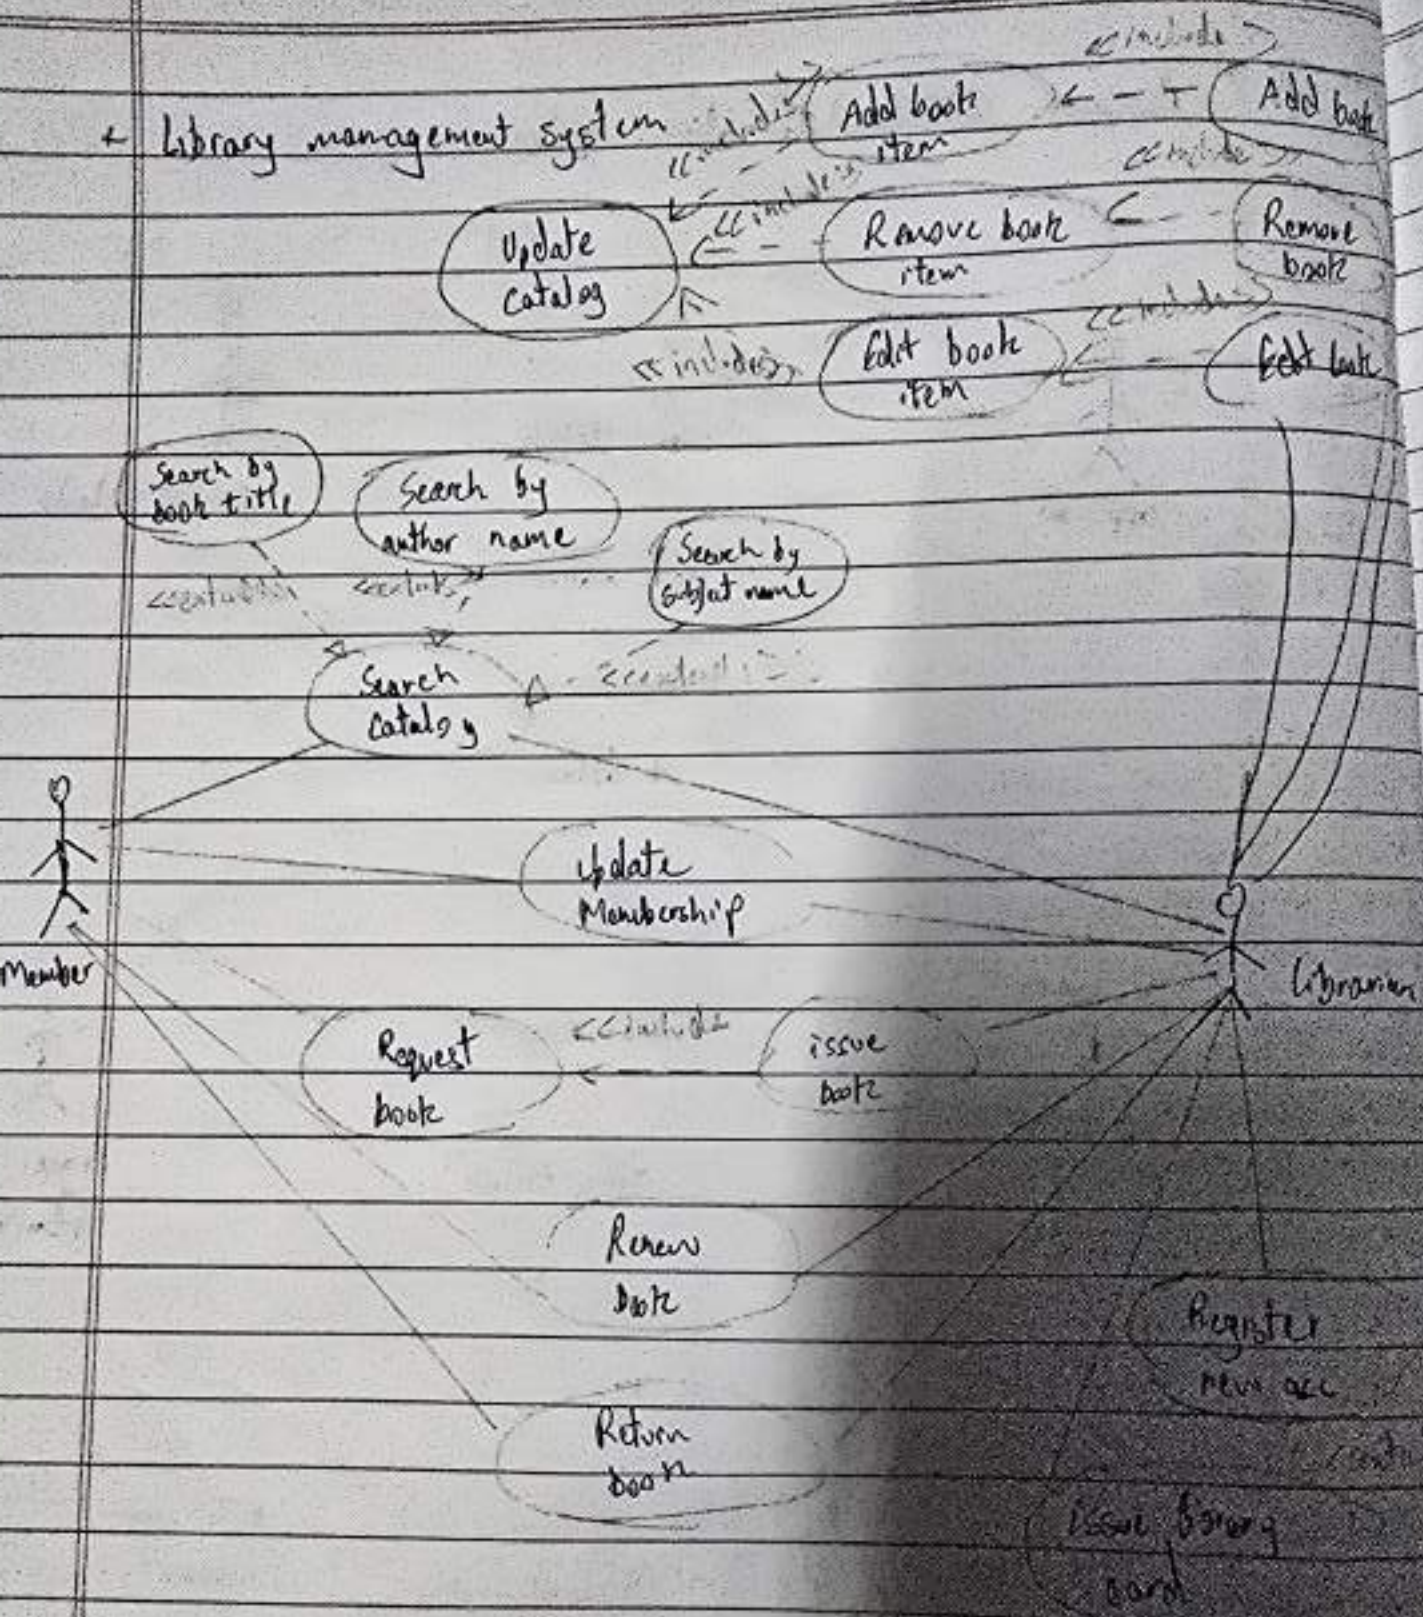 <<include>>
Library management system
<<include>>
Add book
item
Add book
<<include>>
Update
catalog
<<include>>
Remove book
item
Remove
book
<<include>>
<<include>>
Edit book
item
Edit book
Search by
book title
Search by
author name
Search by
subject name
<<extends>>
<<extends>>
Search
catalog
<<extends>>
Update
Membership
Member
Librarian
Request
book
<<include>>
issue
book
Renew
book
Register
new acc
Return
book
issue library
card